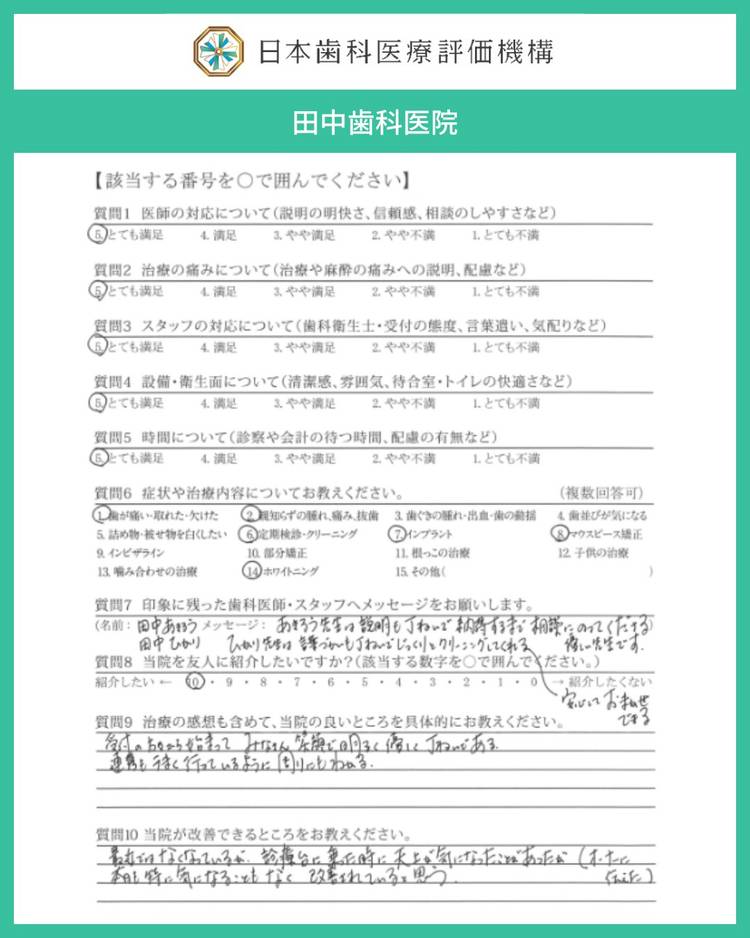 日本歯科医療評価機構
田中歯科医院
【該当する番号を○で囲んでください】
質問1 医師の対応について(説明の明快さ、信頼感、相談のしやすさなど)
5.とても満足 4.満足 3.やや満足 2.やや不満 1.とても不満
質問2 治療の痛みについて(治療や麻酔の痛みへの説明、配慮など)
5.とても満足 4.満足 3.やや満足 2.やや不満 1.とても不満
質問3 スタッフの対応について(歯科衛生士・受付の態度、言葉遣い、気配りなど)
5.とても満足 4.満足 3.やや満足 2.やや不満 1.とても不満
質問4 設備・衛生面について(清潔感、雰囲気、待合室・トイレの快適さなど)
5.とても満足 4.満足 3.やや満足 2.やや不満 1.とても不満
質問5 時間について(診察や会計の待つ時間、配慮の有無など)
5.とても満足 4.満足 3.やや満足 2.やや不満 1.とても不満
質問6 症状や治療内容についてお教えください。 (複数回答可)
1.歯が痛い・取れた・欠けた 2.親知らずの腫れ、痛み、抜歯 3.歯ぐきの腫れ・出血・歯の動揺 4.歯並びが気になる
5.詰め物・被せ物を白くしたい 6.定期検診・クリーニング 7.インプラント 8.マウスピース矯正
9.インビザライン 10.部分矯正 11.根っこの治療 12.子供の治療
13.噛み合わせの治療 14.ホワイトニング 15.その他( )
質問7 印象に残った歯科医師・スタッフへメッセージをお願いします。
(名前: 田中あきろう メッセージ: あきろう先生は説明も丁ねいで納得するまで相談にのってくださる)
田中ひかり ひかり先生は言葉づかいも丁ねいでじっくりとクリーニングしてくれる 優しい先生です.
質問8 当院を友人に紹介したいですか?(該当する数字を○で囲んでください。)
紹介したい ← 10・9・8・7・6・5・4・3・2・1・0 → 紹介したくない
安心して お まかせ
できる
質問9 治療の感想も含めて、当院の良いところを具体的にお教えください。
受付の方から始まって みなさん 笑顔で明るく 優しく 丁ねいである.
連携も うまく 行っているように 周りにもわかる.
質問10 当院が改善できるところをお教えください。
最近ではなくなっているが、診療台に乗った時に 天上が気になったことがあったが (オーナーに
本日も特に気になることもなく 改善されていると思う. 伝えた)